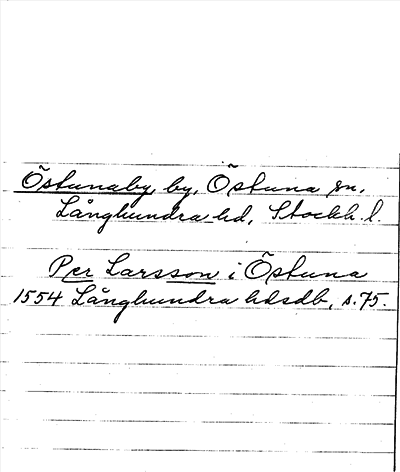 Östunaby, by, Östuna sn,
Långhundra hd, Stockh. l.
Per Larsson i Östuna
1554 Långhundra hdsdb, s. 75.